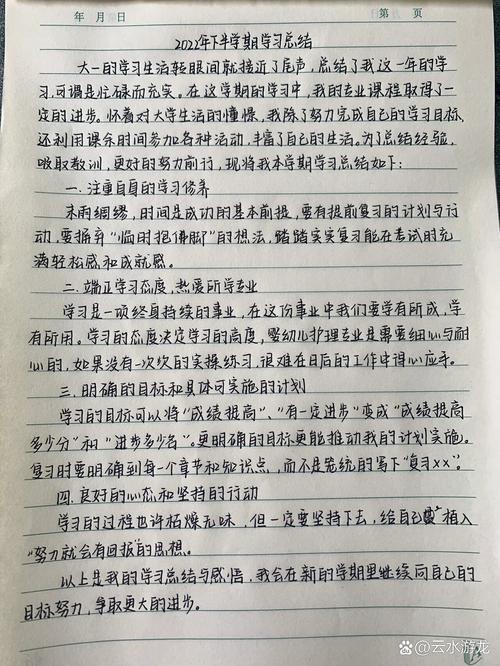 年 月 日 第 页
2022年下半学期学习总结
大一的学习生活轻眼间就接近了尾声,总结了我这一年的学
习,可谓是忙碌而充实。在这学期的学习中,我的专业课程取得了一
定的进步。怀着对大学生活的憧憬,我除了努力完成自己的学习目标,
还利用课余时间参加各种活动,丰富了自己的生活。为了总结经验,
吸取教训,更好的努力前行,现将我本学期学习总结如下:
一.注重自身的学习修养
未雨绸缪,时间是成功的基本前提,要有提前复习的计划与行
动,要摒弃“临时抱佛脚”的想法,踏踏实实复习能在考试时充
满轻松感和成就感。
二.端正学习态度,热爱所学专业
学习是一项终身持续的事业,在这份事业中我们要学有所成,学
有所用。学习的态度决定学习的高度,婴幼儿护理专业是需要细心与耐
心的,如果没有一次次的实操练习,很难在日后的工作中得心应手。
三.明确的目标和具体可实施的计划
学习的目标可以将“成绩提高”、“有一定进步”变成“成绩提高
多少分”和“进步多少名”。更明确的目标更能推动我的计划实施。
复习时要明确到每一个章节和知识点,而不是笼统的写下“复习xx”。
四.良好的心态和坚持的行动
学习的过程也许枯燥无味,但一定要坚持下去,给自己植入
“努力就会有回报”的思想。
以上是我的学习总结与感悟,我会在新的学期里继续向自己的
目标努力,争取更大的进步。
云水游龙